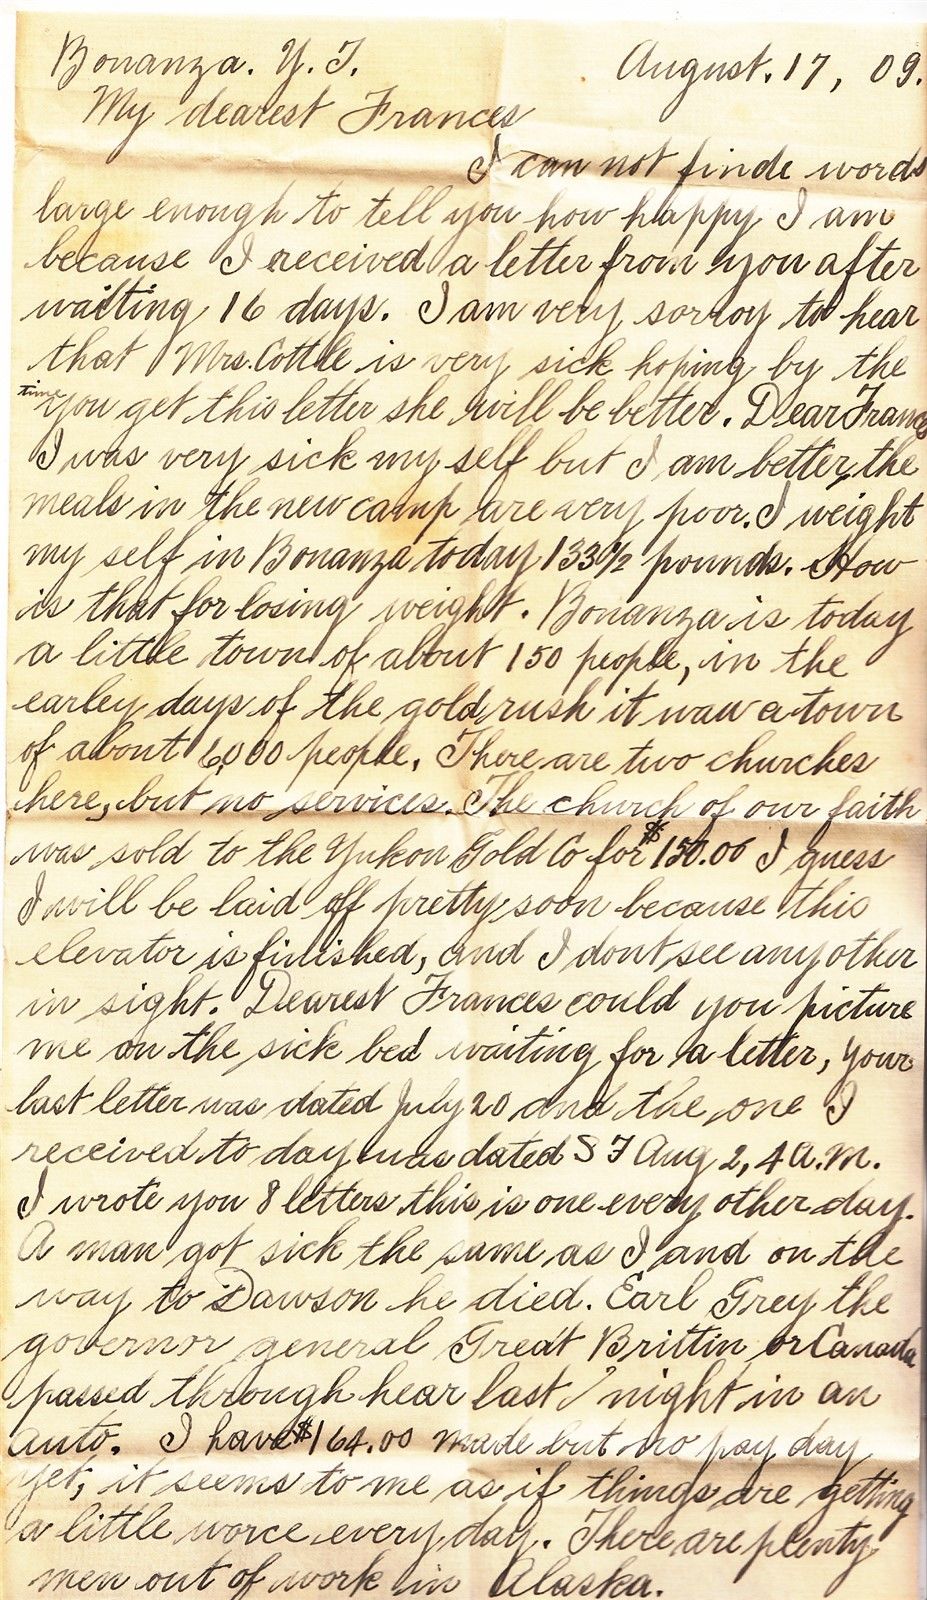 Bonanza. Y. T. August. 17, 09.
My dearest Frances
I can not finde words
large enough to tell you how happy I am
because I received a letter from you after
waitting 16 days. I am very sorroy to hear
that Mrs. Cottle is very sick hoping by the
time you get this letter she will be better. Dear Frances
I was very sick my self but I am better, the
meals in the new camp are very poor. I weight
my self in Bonanza today 133 1/2 pounds. How
is that for losing weight. Bonanza is today
a little town of about 150 people, in the
earley days of the gold rush it was a town
of about 6,000 people. There are two churches
here, but no services. The church of our faith
was sold to the Yukon Gold Co for $150.00 I guess
I will be laid off pretty soon because this
elevator is finished, and I dont see any other
in sight. Dearest Frances could you picture
me on the sick bed waiting for a letter, your
last letter was dated July 20 and the one I
received to day was dated S F Aug 2, 4 A.M.
I wrote you 8 letters this is one every other day.
A man got sick the same as I and on the
way to Dawson he died. Earl Grey the
governor general Great Brittin or Canada
passed through hear last night in an
auto. I have $164.00 made but no pay day
yet, it seems to me as if things are getting
a little worce every day. There are plenty
men out of work in Alaska.